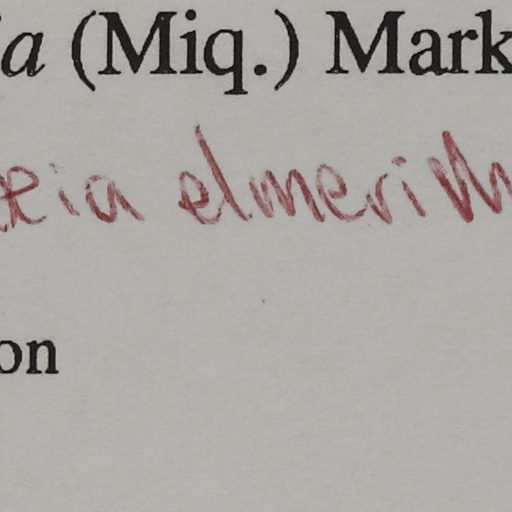 a (Miq.) Mark
eia elmeri M
on